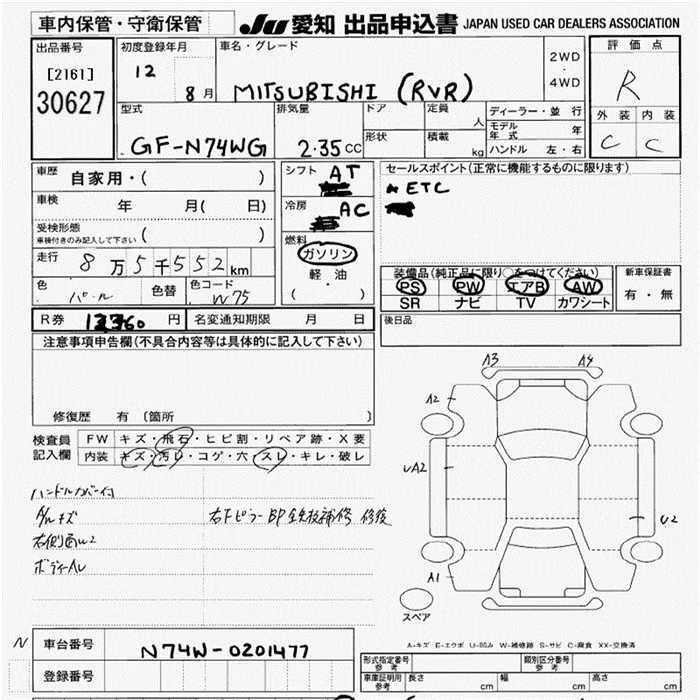 車内保管・守衛保管 JU 愛知 出品申込書 JAPAN USED CAR DEALERS ASSOCIATION
出品番号 初度登録年月 車名・グレード 2WD・4WD 評価点
[2161] 12 8月 MITSUBISHI (RVR) R
30627 型式 排気量 ドア 定員 人 ディーラー・並行 外装 内装
GF-N74WG 2.35 CC 形状 積載 kg モデル年式 年 C C
ハンドル 左・右
車歴 自家用・( ) シフト AT セールスポイント(正常に機能するものに限ります)
車検 年 月( 日) 冷房 AC ETC
受検形態 ( )
車検付きのみ記入して下さい
燃料
走行 8万5千552km ガソリン
軽・油
装備品(純正品に限り○をつけてください) 新車保証書
色 パール 色替 色コード W75 ( ・ ) PS PW エアB AW 有・無
SR ナビ TV カワシート
R券 円 名変通知期限 月 日 後日品
注意事項申告欄(不具合内容等は具体的に記入して下さい)
A3 A4
A2
修復歴 有 〔箇所 〕
検査員 FW キズ・飛石・ヒビ割・リペア跡・X要
記入欄 内装 キズ・汚レ・コゲ・穴・スレ・キレ・破レ
A2
ハンドルカバー付
キズ 右Fピラー BP 鈑補修 修後
右側面W2 U2
ボディーAU
A1
スペア
A-キズ E-エクボ U-凹み W-補修跡 S-サビ C-腐食 XX-交換済
N 車台番号 N74W-0201477
登録番号 形式指定番号 参考 類別区分番号 参考
車庫証明用 参考 長さ cm 幅 cm 高さ cm